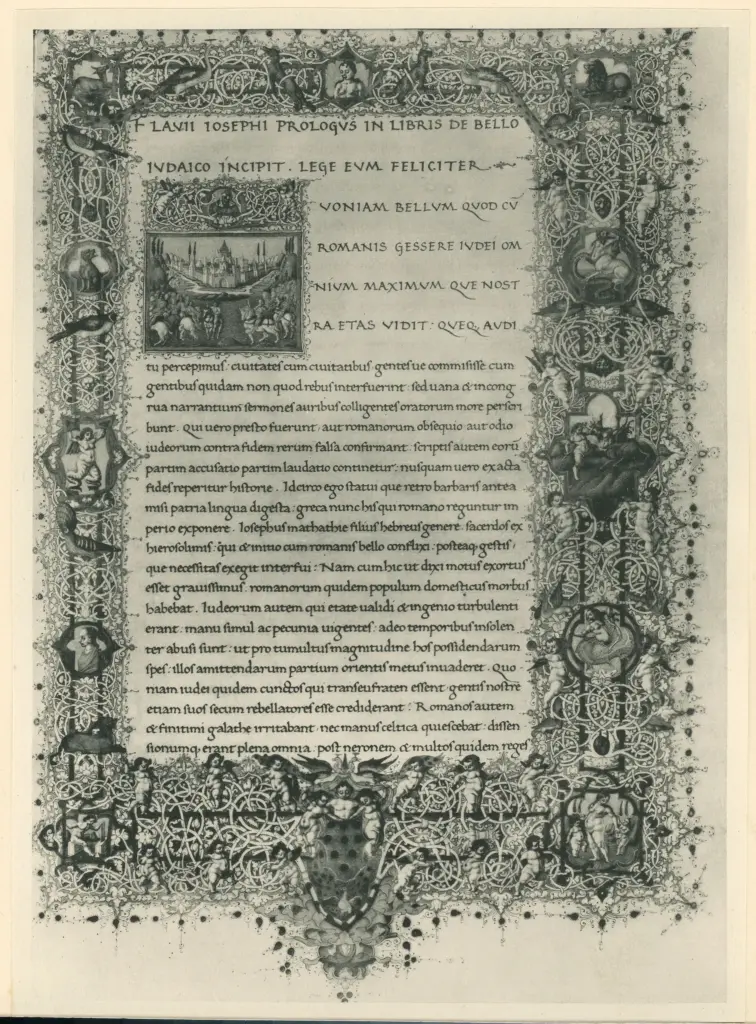 FLAVII IOSEPHI PROLOGVS IN LIBRIS DE BELLO
IVDAICO INCIPIT . LEGE EVM FELICITER
VONIAM BELLVM QVOD CV
ROMANIS GESSERE IVDEI OM
NIVM MAXIMVM QVE NOST
RA ETAS VIDIT : QVEQ; AVDI
tu percepimus: ciuitates cum ciuitatibus gentesue commisisse cum
gentibus quidam non quod rebus interfuerint sed uana & incong
rua narrantium sermones auribus colligentes oratorum more perscri
bunt. Qui uero presto fuerunt aut romanorum obsequio aut odio
iudeorum contra fidem rerum falsa confirmant: scriptis autem eorū
partim accusatio partim laudatio continetur: nusquam uero exacta
fides reperitur historie. Idcirco ego statui que retro barbaris antea
misi patria lingua digesta: greca nunc his qui romano reguntur im
perio exponere. Iosephus mathathie filius hebreus genere. sacerdos ex
hierosolimis: qui & initio cum romanis bello conflixi: posteaq; gestis,
que necessitas exegit interfui: Nam cum hic ut dixi motus exortus
esset grauissimus. romanorum quidem populum domesticus morbus
habebat. Iudeorum autem qui etate ualidi & ingenio turbulenti
erant: manu simul ac pecunia uigentes: adeo temporibus insolen
ter abusi sunt: ut pro tumultus magnitudine hos possidendarum
spes. illos amittendarum partium orientis metus inuaderet. Quo
niam iudei quidem cunctos qui trans eufraten essent gentis nostre
etiam suos secum rebellatores esse crediderant: Romanos autem
& finitimi galathe irritabant nec manus celtica quiescebat: dissen
sionumq; erant plena omnia. post neronem & multos quidem reges